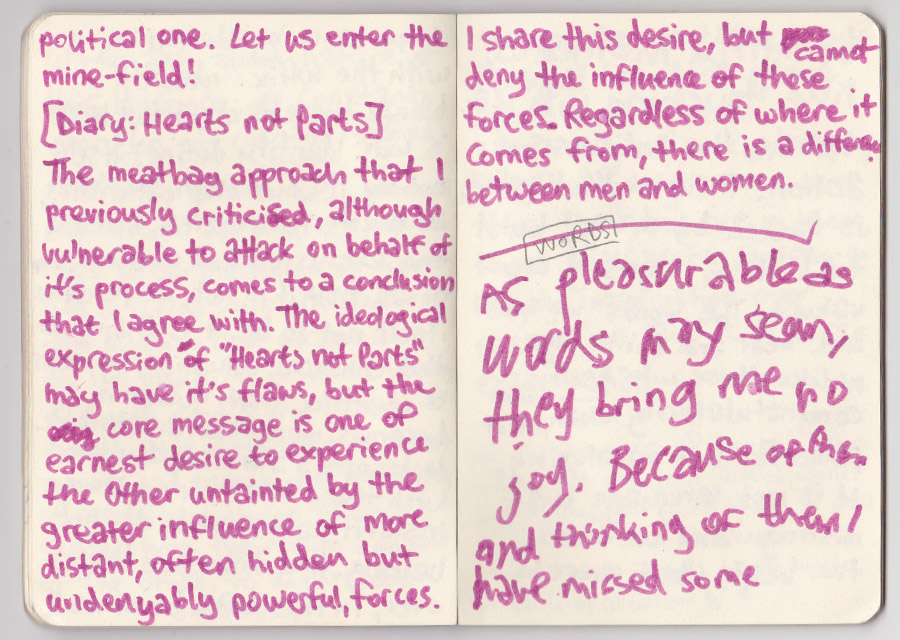 political one. Let us enter the
mine-field!
[Diary: Hearts not Parts]
The meatbag approach that I
previously criticised, although
vulnerable to attack on behalf of
it's process, comes to a conclusion
that I agree with. The ideological
expression of "Hearts not Parts"
may have it's flaws, but the
core message is one of
earnest desire to experience
the Other untainted by the
greater influence of more
distant, often hidden but
undenyably powerful, forces.
I share this desire, but
cannot
deny the influence of these
forces. Regardless of where it
comes from, there is a difference
between men and women.
WORDS
As pleasurable as
words may seem,
they bring me no
joy. Because of them
and thinking of them I
have missed some